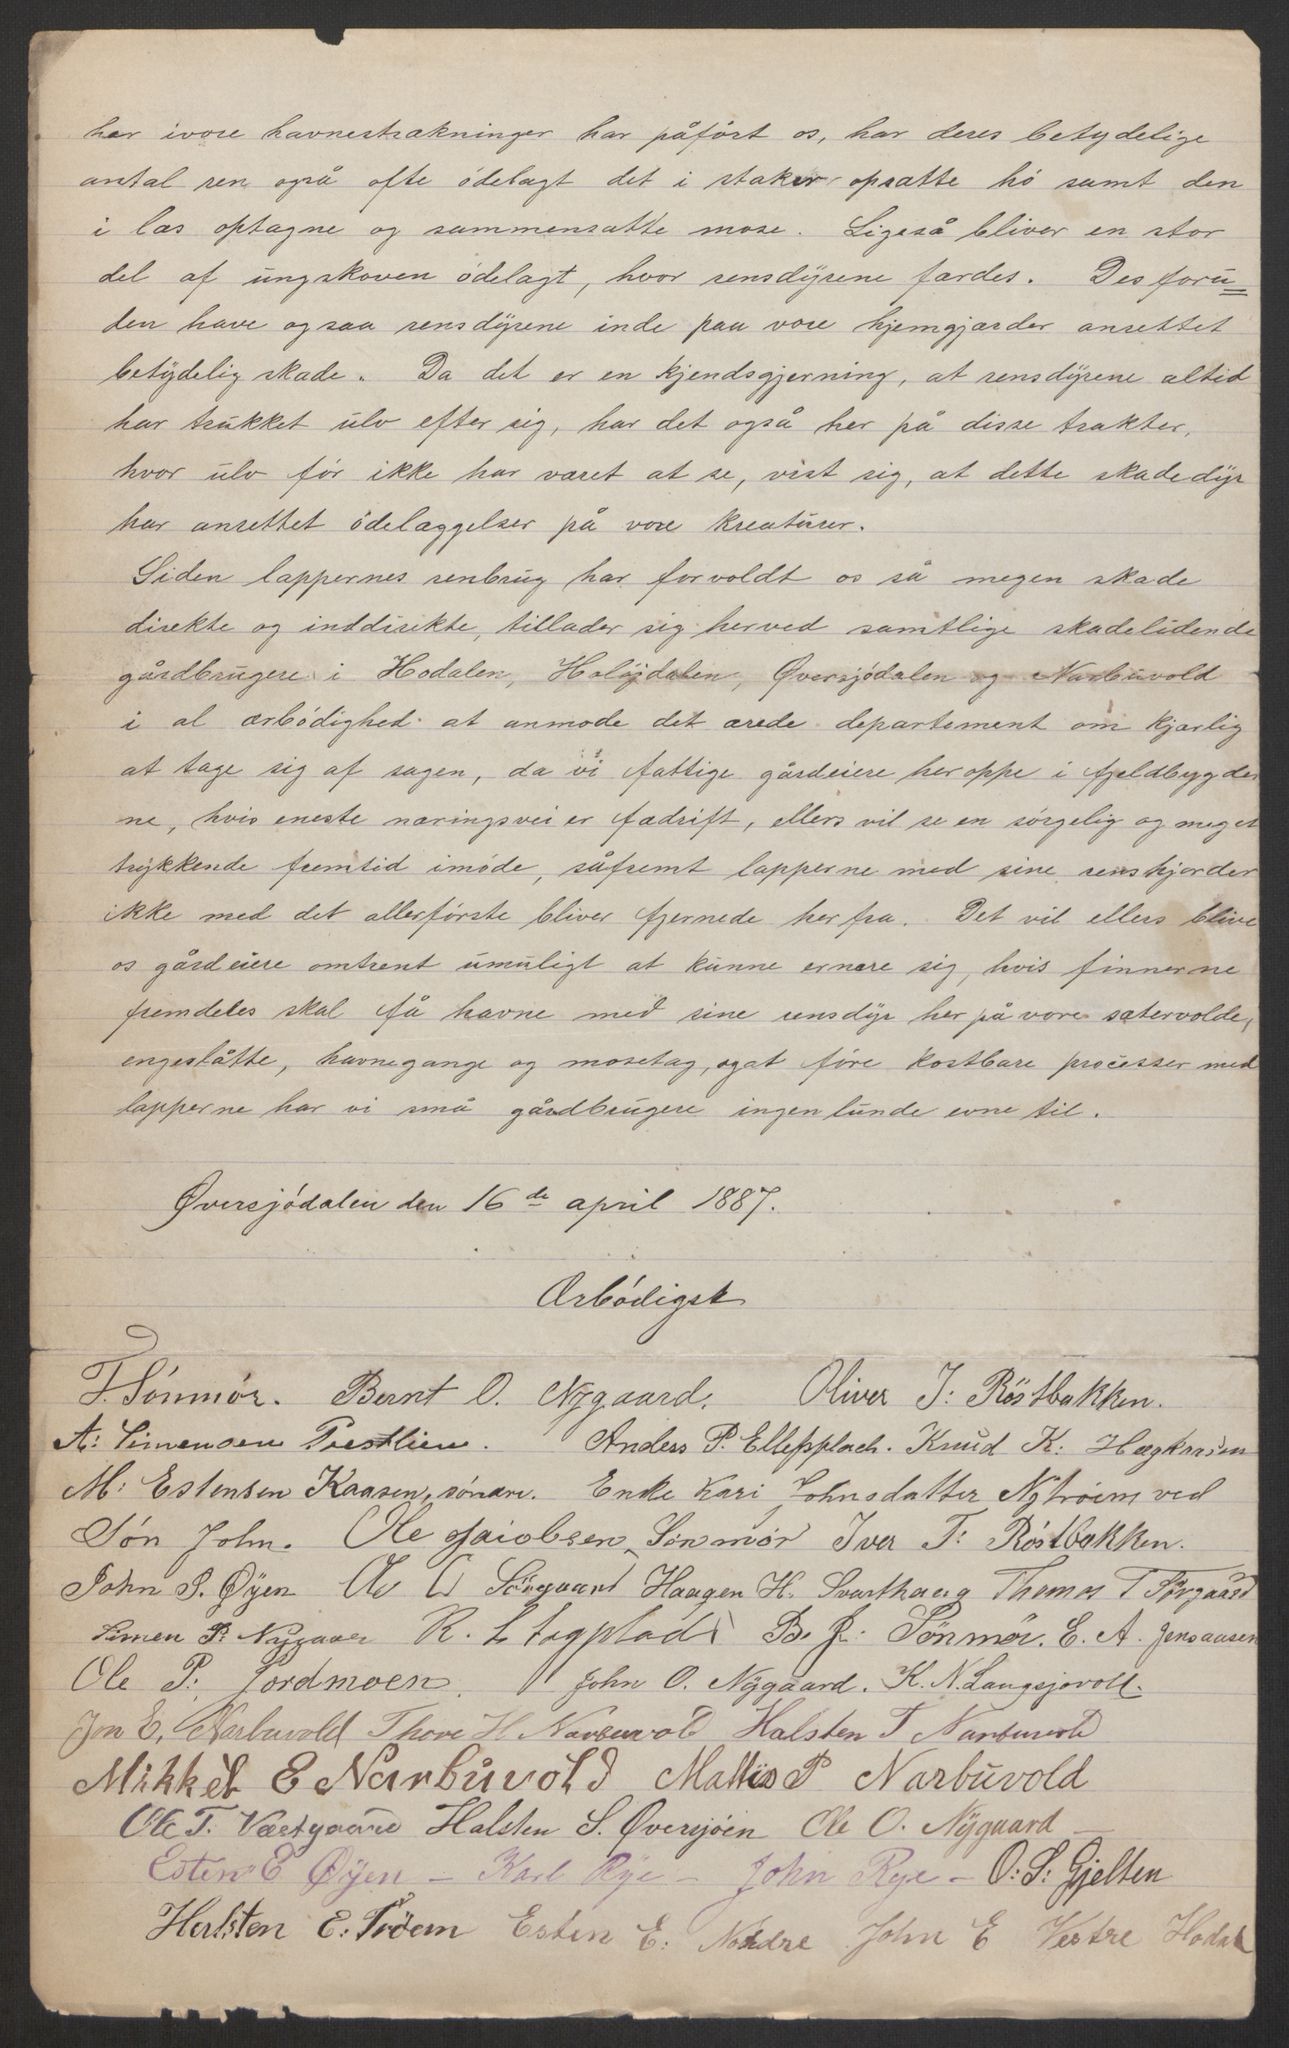 her ivore havnestrækninger har påfört os, har deres betydelige
antal ren også ofte ödelagt det i staker opsatte hö samt den
i læs optagne og sammensatte mose. Ligeså bliver en stor
del af ungskoven ödelagt, hvor rensdyrene færdes. Des foru=
den have ogsaa rensdyrene inde paa vore hjemgjærder anrettet
betydelig skade. Da det er en kjendsgjerning, at rensdyrene altid
har trukket ulv efter sig, har det også her på disse trakter,
hvor ulv för ikke har været at se, vist sig, at dette skadedyr
har anrettet ödelæggelser på vore kreaturer.
Siden lappernes renbrug har forvoldt os så megen skade
direkte og inddirekte, tillader sig herved samtlige skadelidende
gårdbrugere i Hodalen, Holöjdalen, Øversjödalen og Narbuvold
i al ærbödighed at anmode det ærede departement om kjærlig
at tage sig af sagen, da vi fattige gårdeiere heroppe i fjeldbygder
ne, hvis eneste næringsvei er fædrift, ellers vil se en sörgelig og meget
trykkende fremtid imöde, såfremt lapperne med sine renshjorder
ikke med det allerförste bliver fjernede herfra. Det vil ellers blive
os gårdeiere omtrent umuligt at kunne ernære sig, hvis finnerne
fremdeles skal få havne med sine rensdyr her på vore sætervolde,
engeslåtte, havnegange og mosetag, og at före kostbare processer med
lapperne har vi små gårdbrugere ingenlunde evne til.
Øversjödalen den 16de april 1887.
Ærbödigst
T. Sönmör. Bernt O. Nygaard. Oliver J: Röstbakken.
A: Simensen Trestlien. Anders P. Ellepplads. Knud K:
M: Estensen Kaasen, söndre. Enke Kari Johnsdatter Nytröem ved
Sön John. Ole Jaiobsen Sönmör Iver T: Röstbakken.
John S. Øyen Ole O Sörgaard Haagen H. Svarthaug Thomas T Sörgaard
Simen P: Nygaard R. L B. J: Sönmör. E. A. Jensaasen
Ole P: Jordmoen. John O. Nygaard. K. N. Langsjøvold.
Jon E. Narbuvold Thore H Narbuvold Halsten T Narbuvold
Mikkel E Narbuvold Mattis P Narbuvold
Ole T. Væstgaard Halsten S. Øversjøen Ole O. Nygaard —
Esten E Øyen — Karl Rye — John Rye — O: S: Gjelten
Halsten E: Tröem Esten E: Nordre John E Vestre Hodal